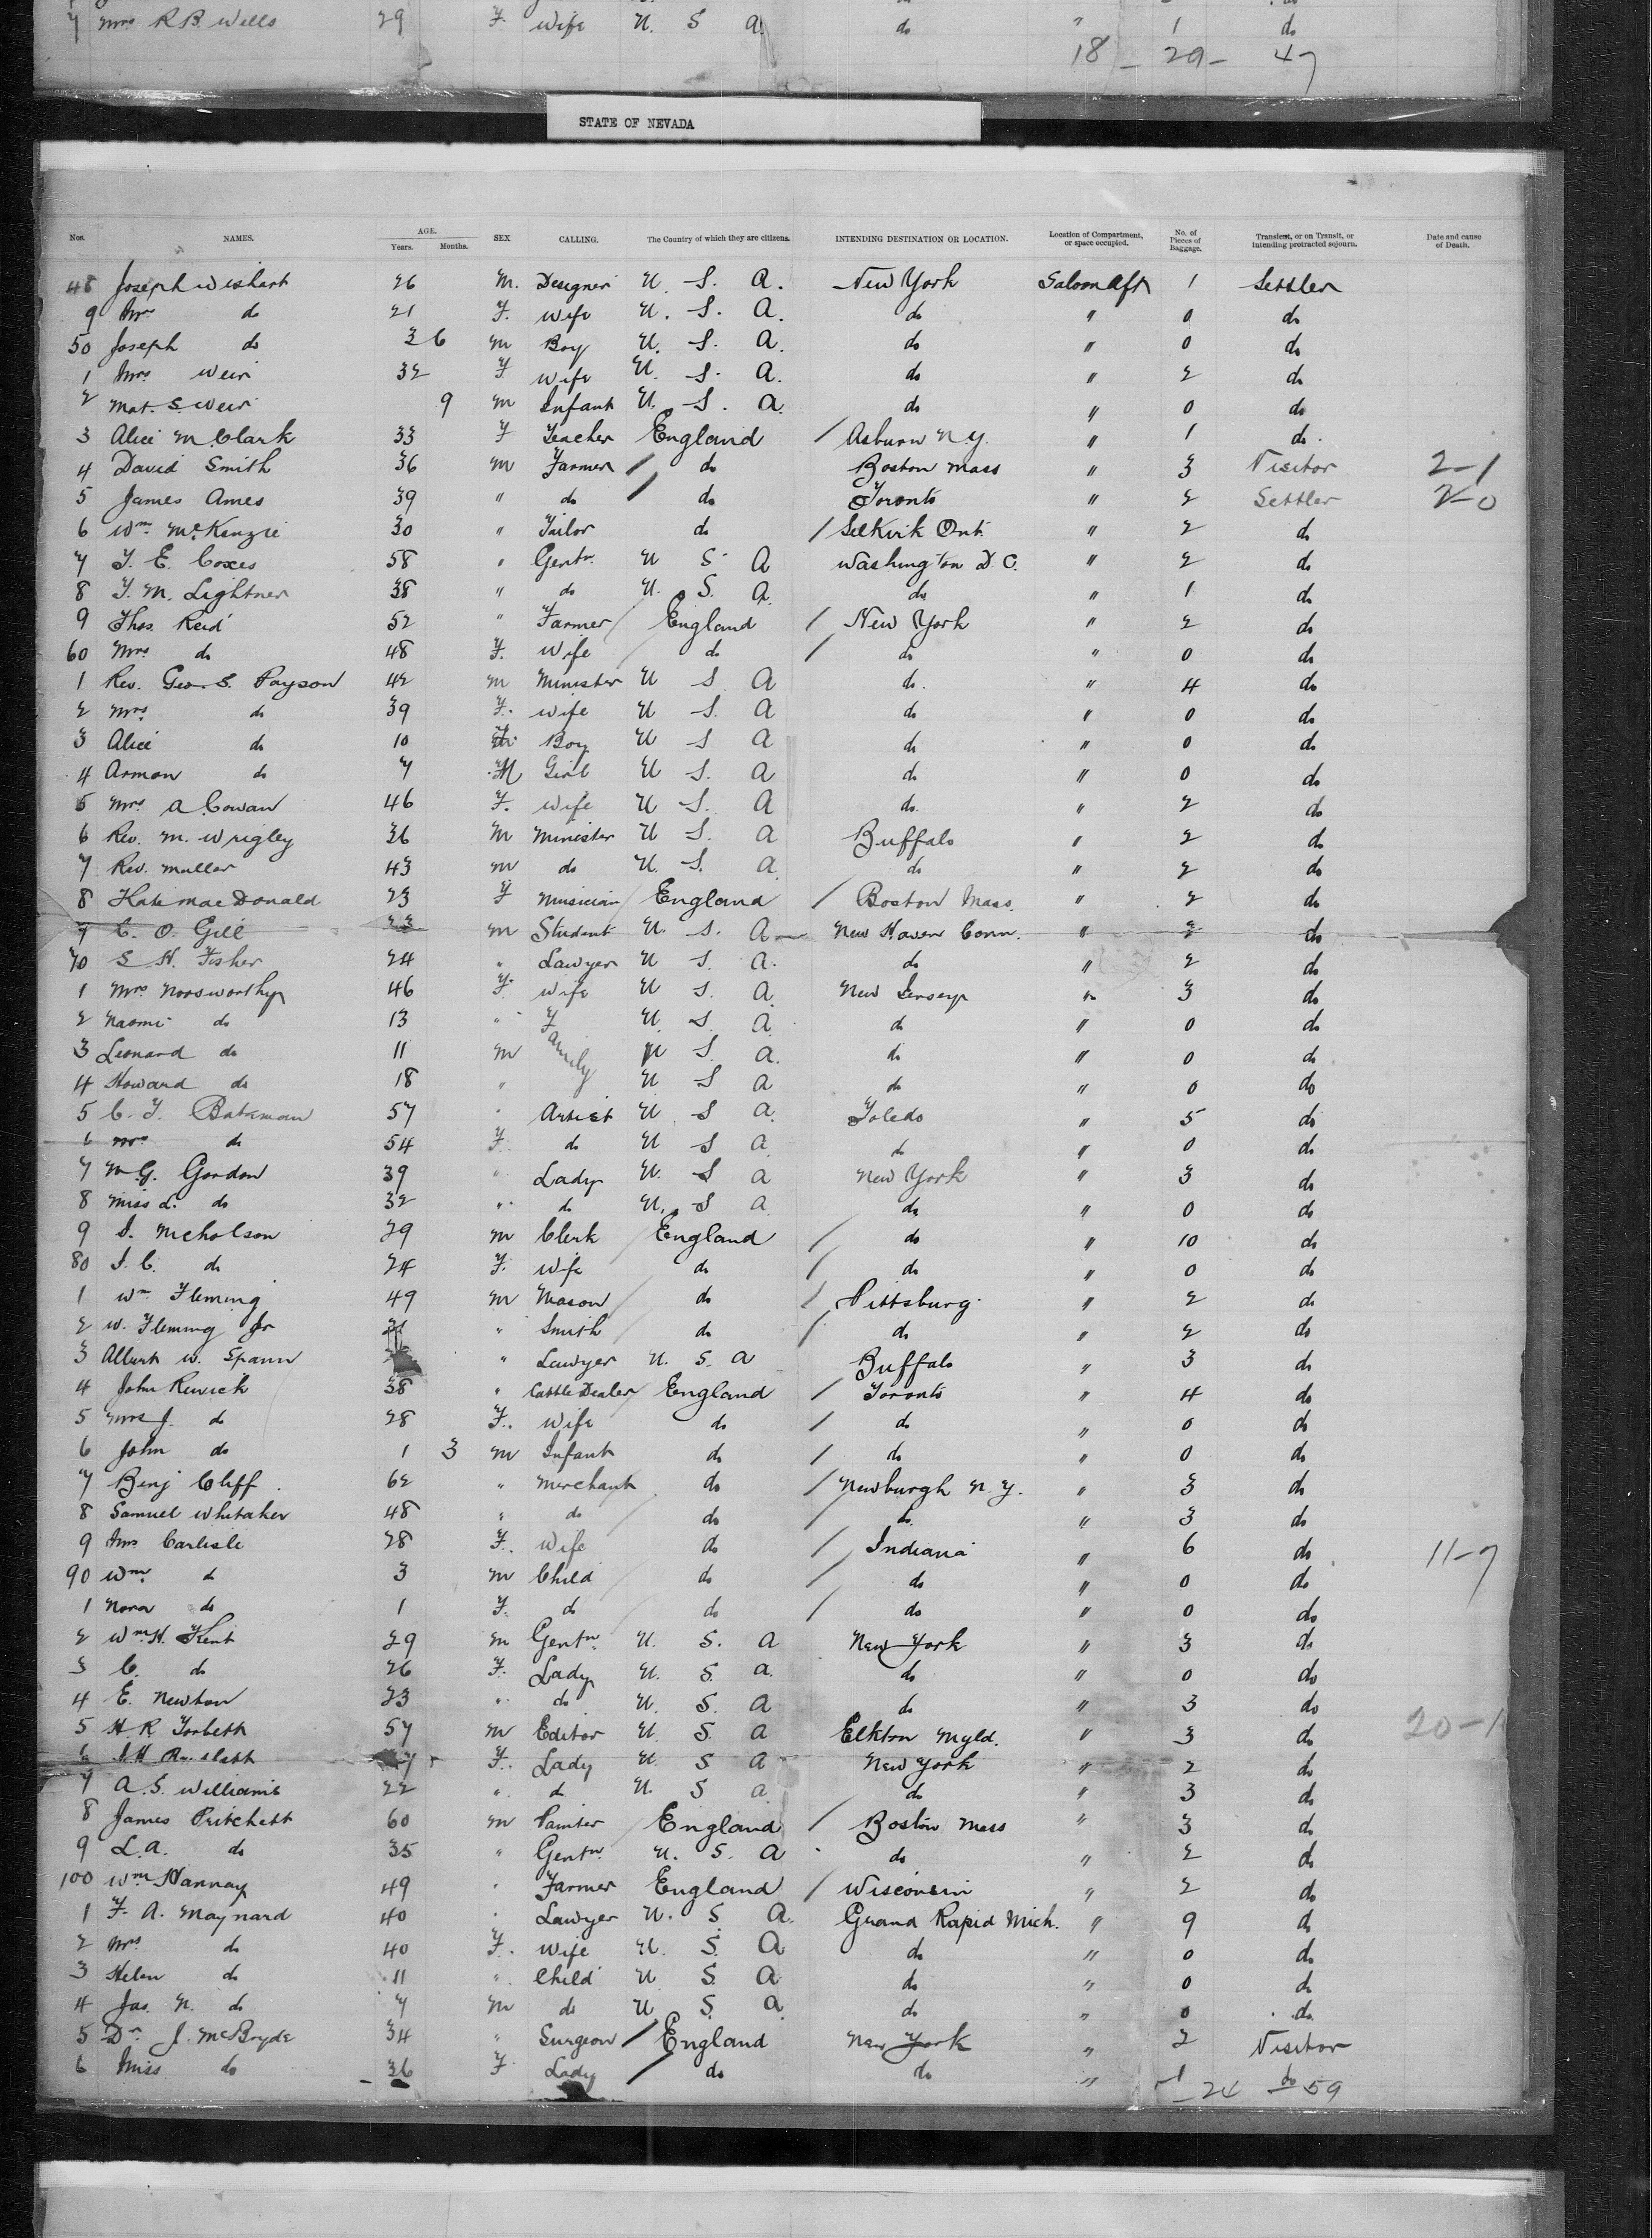 7 Mrs R B. Wells 29 F. Wife U. S. A. do " 1 do
18 - 29 - 47
STATE OF NEVADA
Nos. NAMES. AGE. Years. Months. SEX CALLING. The Country of which they are citizens. INTENDING DESTINATION OR LOCATION. Location of Compartment, or space occupied. No. of Pieces of Baggage. Transient, or on Transit, or intending protracted sojourn. Date and cause of Death.
48 Joseph Wishart 26 M. Designer U. S. A. New York Saloon Aft 1 Settler
9 Mrs do 21 F. Wife U. S. A. do " 0 do
50 Joseph do 3 6 M Boy U. S. A. do " 0 do
1 Mrs Weir 32 F Wife U. S. A. do " 2 do
2 Mat. S. Weir 9 M Infant U. S. A. do " 0 do
3 Alice M. Clark 33 F Teacher England / Asburn N.Y. " 1 do
4 David Smith 36 M Farmer / do Boston Mass " 3 Visitor 2-1
5 James Ames 39 " do / do Toronto " 2 Settler 2-0
6 Wm McKenzie 30 " Tailor do / Selkirk Ont. " 2 do
7 T. E. Coxes 58 " Gentn U S A Washington D.C. " 2 do
8 T. M. Lightner 38 " do U. S. A. do " 1 do
9 Thos. Reid 52 " Farmer / England / New York " 2 do
60 Mrs do 48 F. Wife / do / do " 0 do
1 Rev. Geo. S. Payson 42 M Minister U S A do " 4 do
2 Mrs do 39 F. Wife U S. A do " 0 do
3 Alice do 10 F. Boy U S A do " 0 do
4 Arman do 7 M Girl U S. A do " 0 do
5 Mrs A Cowan 46 F. Wife U S. A do " 2 do
6 Rev. M. Wrigley 36 M Minister U S. A Buffalo " 2 do
7 Rev. Muller 43 M do U. S. A. do " 2 do
8 Kate MacDonald 23 F Musician / England / Boston Mass. " 2 do
9 C. O. Gill 23 M Student U. S. A New Haven Conn. " 2 do
70 S H. Fisher 24 " Lawyer U S. A. do " 2 do
1 Mrs Norsworthy 46 F. Wife U S. A. New Jersey " 3 do
2 Naomi do 13 " Family U. S A do " 0 do
3 Leonard do 11 M U S A. do " 0 do
4 Howard do 18 " U S A do " 0 do
5 C. T. Bateman 57 " Artist U S A Toledo " 5 do
6 Mrs do 54 F. do U S A do " 0 do
7 M G. Gordon 39 " Lady U. S A New York " 3 do
8 Miss L. do 32 " do U. S A do " 0 do
9 D. Nicholson 29 M Clerk / England / do " 10 do
80 I. C. do 24 F. Wife do / do " 0 do
1 Wm Fleming 49 M Mason / do / Pittsburg " 2 do
2 W. Fleming Jr 21 " Smith / do / do " 2 do
3 Albert W. Spann " Lawyer U. S. A Buffalo " 3 do
4 John Renick 38 " Cattle Dealer / England / Toronto " 4 do
5 Mrs J. do 28 F. Wife do / do " 0 do
6 John do 1 3 M Infant do / do " 0 do
7 Benj Cliff 62 " Merchant do / Newburgh N.Y. " 3 do
8 Samuel Whitaker 48 " do / do / do " 3 do
9 Mrs Carlisle 28 F. Wife do / Indiana " 6 do 11-7
90 Wm do 3 M Child / do / do " 0 do
1 Nora do 1 F. do / do / do " 0 do
2 Wm H. Kent 29 M Gentn U. S. A New York " 3 do
3 C. do 26 F. Lady U. S. A. do " 0 do
4 E. Newton 23 " do U. S. A do " 3 do
5 H R Torbett 57 M Editor U. S. A Elkton Myld. " 3 do 20-1
6 F. Lady U S A New York " 2 do
7 A. S. Williams 22 " do U. S A do " 3 do
8 James Pritchett 60 M Painter / England / Boston Mass " 3 do
9 L. A. do 35 " Gentn U. S. A do " 2 do
100 Wm Hannay 49 " Farmer England / Wisconsin " 2 do
1 F. A. Maynard 40 " Lawyer U. S. A. Grand Rapid Mich. " 9 do
2 Mrs do 40 F. Wife U. S. A do " 0 do
3 Helen do 11 " Child U S. A do " 0 do
4 Jas. N. do 7 M do U S. A do " 0 do
5 Dr J. McBryde 34 " Surgeon / England New York " 2 Visitor
6 Miss do 26 F Lady / do do " 1 do
24 59